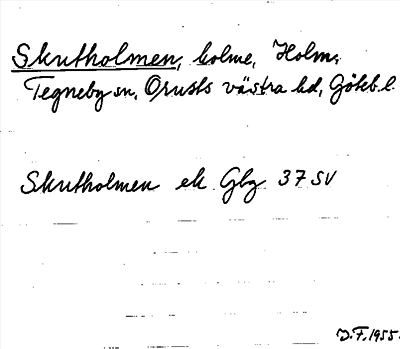 Skutholmen, holme, Holm,
Tegneby sn, Orusts västra hd, Göteb. l.
Skutholmen ek Gbg 37 SV
D.F. 1955.